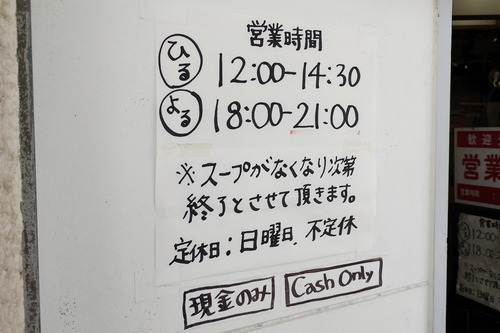 営業時間
ひる 12:00-14:30
よる 18:00-21:00
※スープがなくなり次第
終了とさせて頂きます。
定休日:日曜日、不定休
現金のみ Cash Only
歓迎
営業
営業時間
12:00
18:00